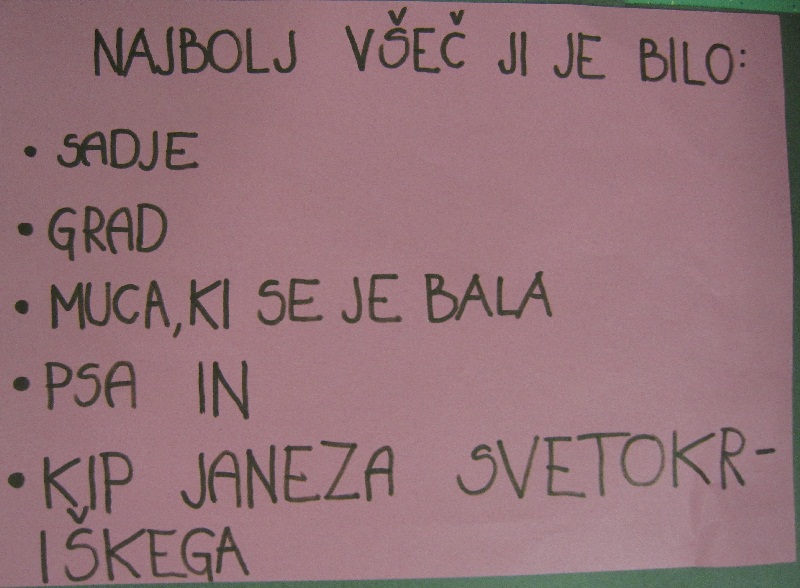 NAJBOLJ VŠEČ JI JE BILO:
• SADJE
• GRAD
• MUCA, KI SE JE BALA
• PSA IN
• KIP JANEZA SVETOKR-
IŠKEGA